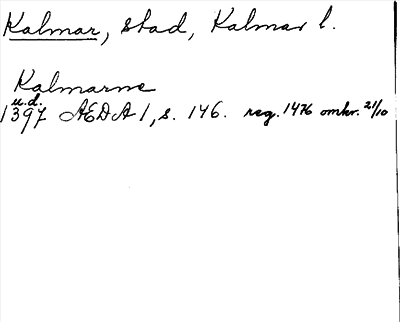 Kalmar, stad, Kalmar l.
Kalmarne
u.d.
1397 AEDA 1, s. 146. reg. 1476 omkr. 21/10